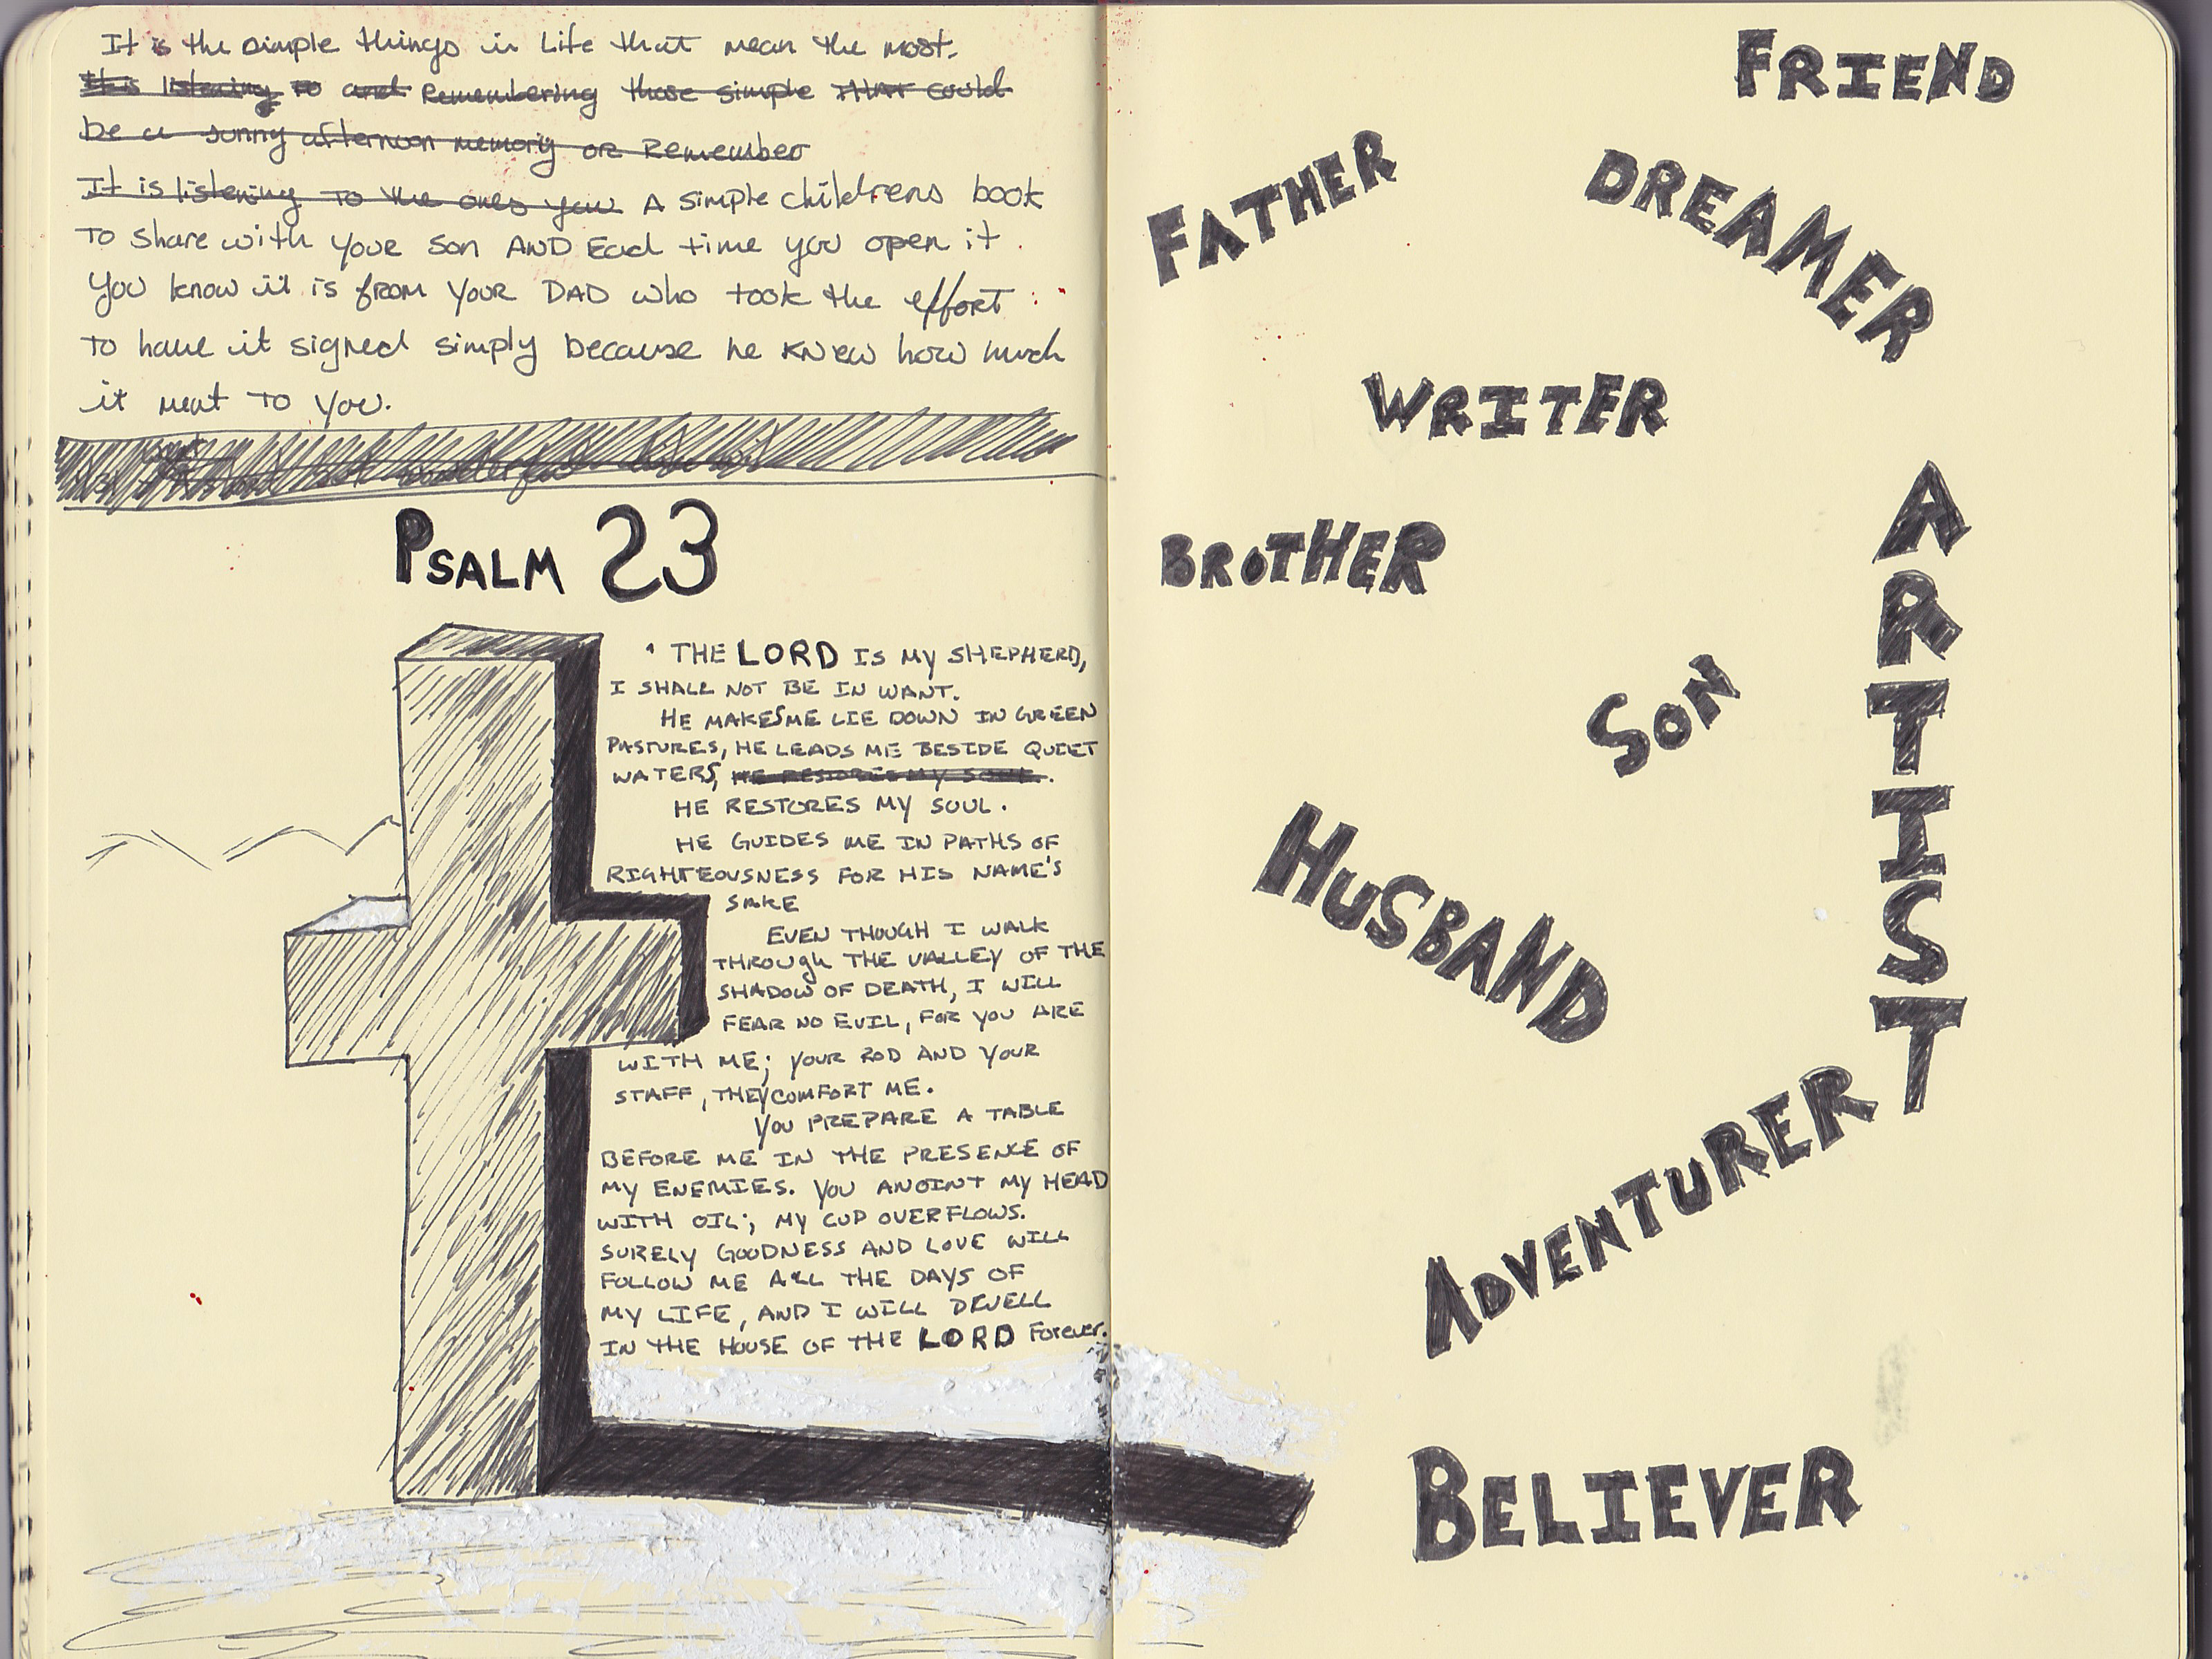 It is the simple things in Life that mean the most.
this listening to and Remembering those simple THAT could
be a sunny afternoon memory or Remember
It is listening to the ones you A simple childrens book
To share with your son AND Each time you open it.
You know it is from YOUR DAD who took the effort
to have it signed simply because he KNew how much
it meat to You.
PSALM 23
THE LORD IS MY SHEPHERD,
I SHALL NOT BE IN WANT.
HE MAKES ME LIE DOWN IN GREEN
PASTURES, HE LEADS ME BESIDE QUIET
WATERS, HE RESTORES MY SOUL.
HE RESTORES MY SOUL.
HE GUIDES ME IN PATHS OF
RIGHTEOUSNESS FOR HIS NAME'S
SAKE
EVEN THOUGH I WALK
THROUGH THE VALLEY OF THE
SHADOW OF DEATH, I WILL
FEAR NO EVIL, FOR YOU ARE
WITH ME; YOUR ROD AND YOUR
STAFF, THEY COMFORT ME.
YOU PREPARE A TABLE
BEFORE ME IN THE PRESENCE OF
MY ENEMIES. YOU ANOINT MY HEAD
WITH OIL; MY CUP OVERFLOWS.
SURELY GOODNESS AND LOVE WILL
FOLLOW ME ALL THE DAYS OF
MY LIFE, AND I WILL DWELL
IN THE HOUSE OF THE LORD Forever.
FRIEND
FATHER
DREAMER
WRITER
BROTHER
ARTIST
SON
HUSBAND
ADVENTURER
BELIEVER